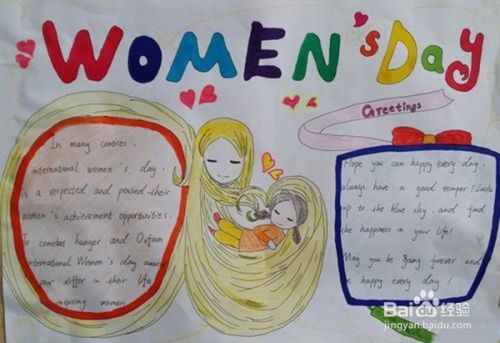 WOMEN'S Day
Greetings
In many contries,
international women's day,
is a respected and praised their
women's achievement opportunities.
To combat hunger and Oxfam
international Women's day award
differ in their life
inspiring women
Hope you can happy every day,
always have a good temper! Look
up to the blue sky, and find
the happiness in your life!
May you be young forever and
be happy every day!
Baidu经验
jingyan.baidu.com